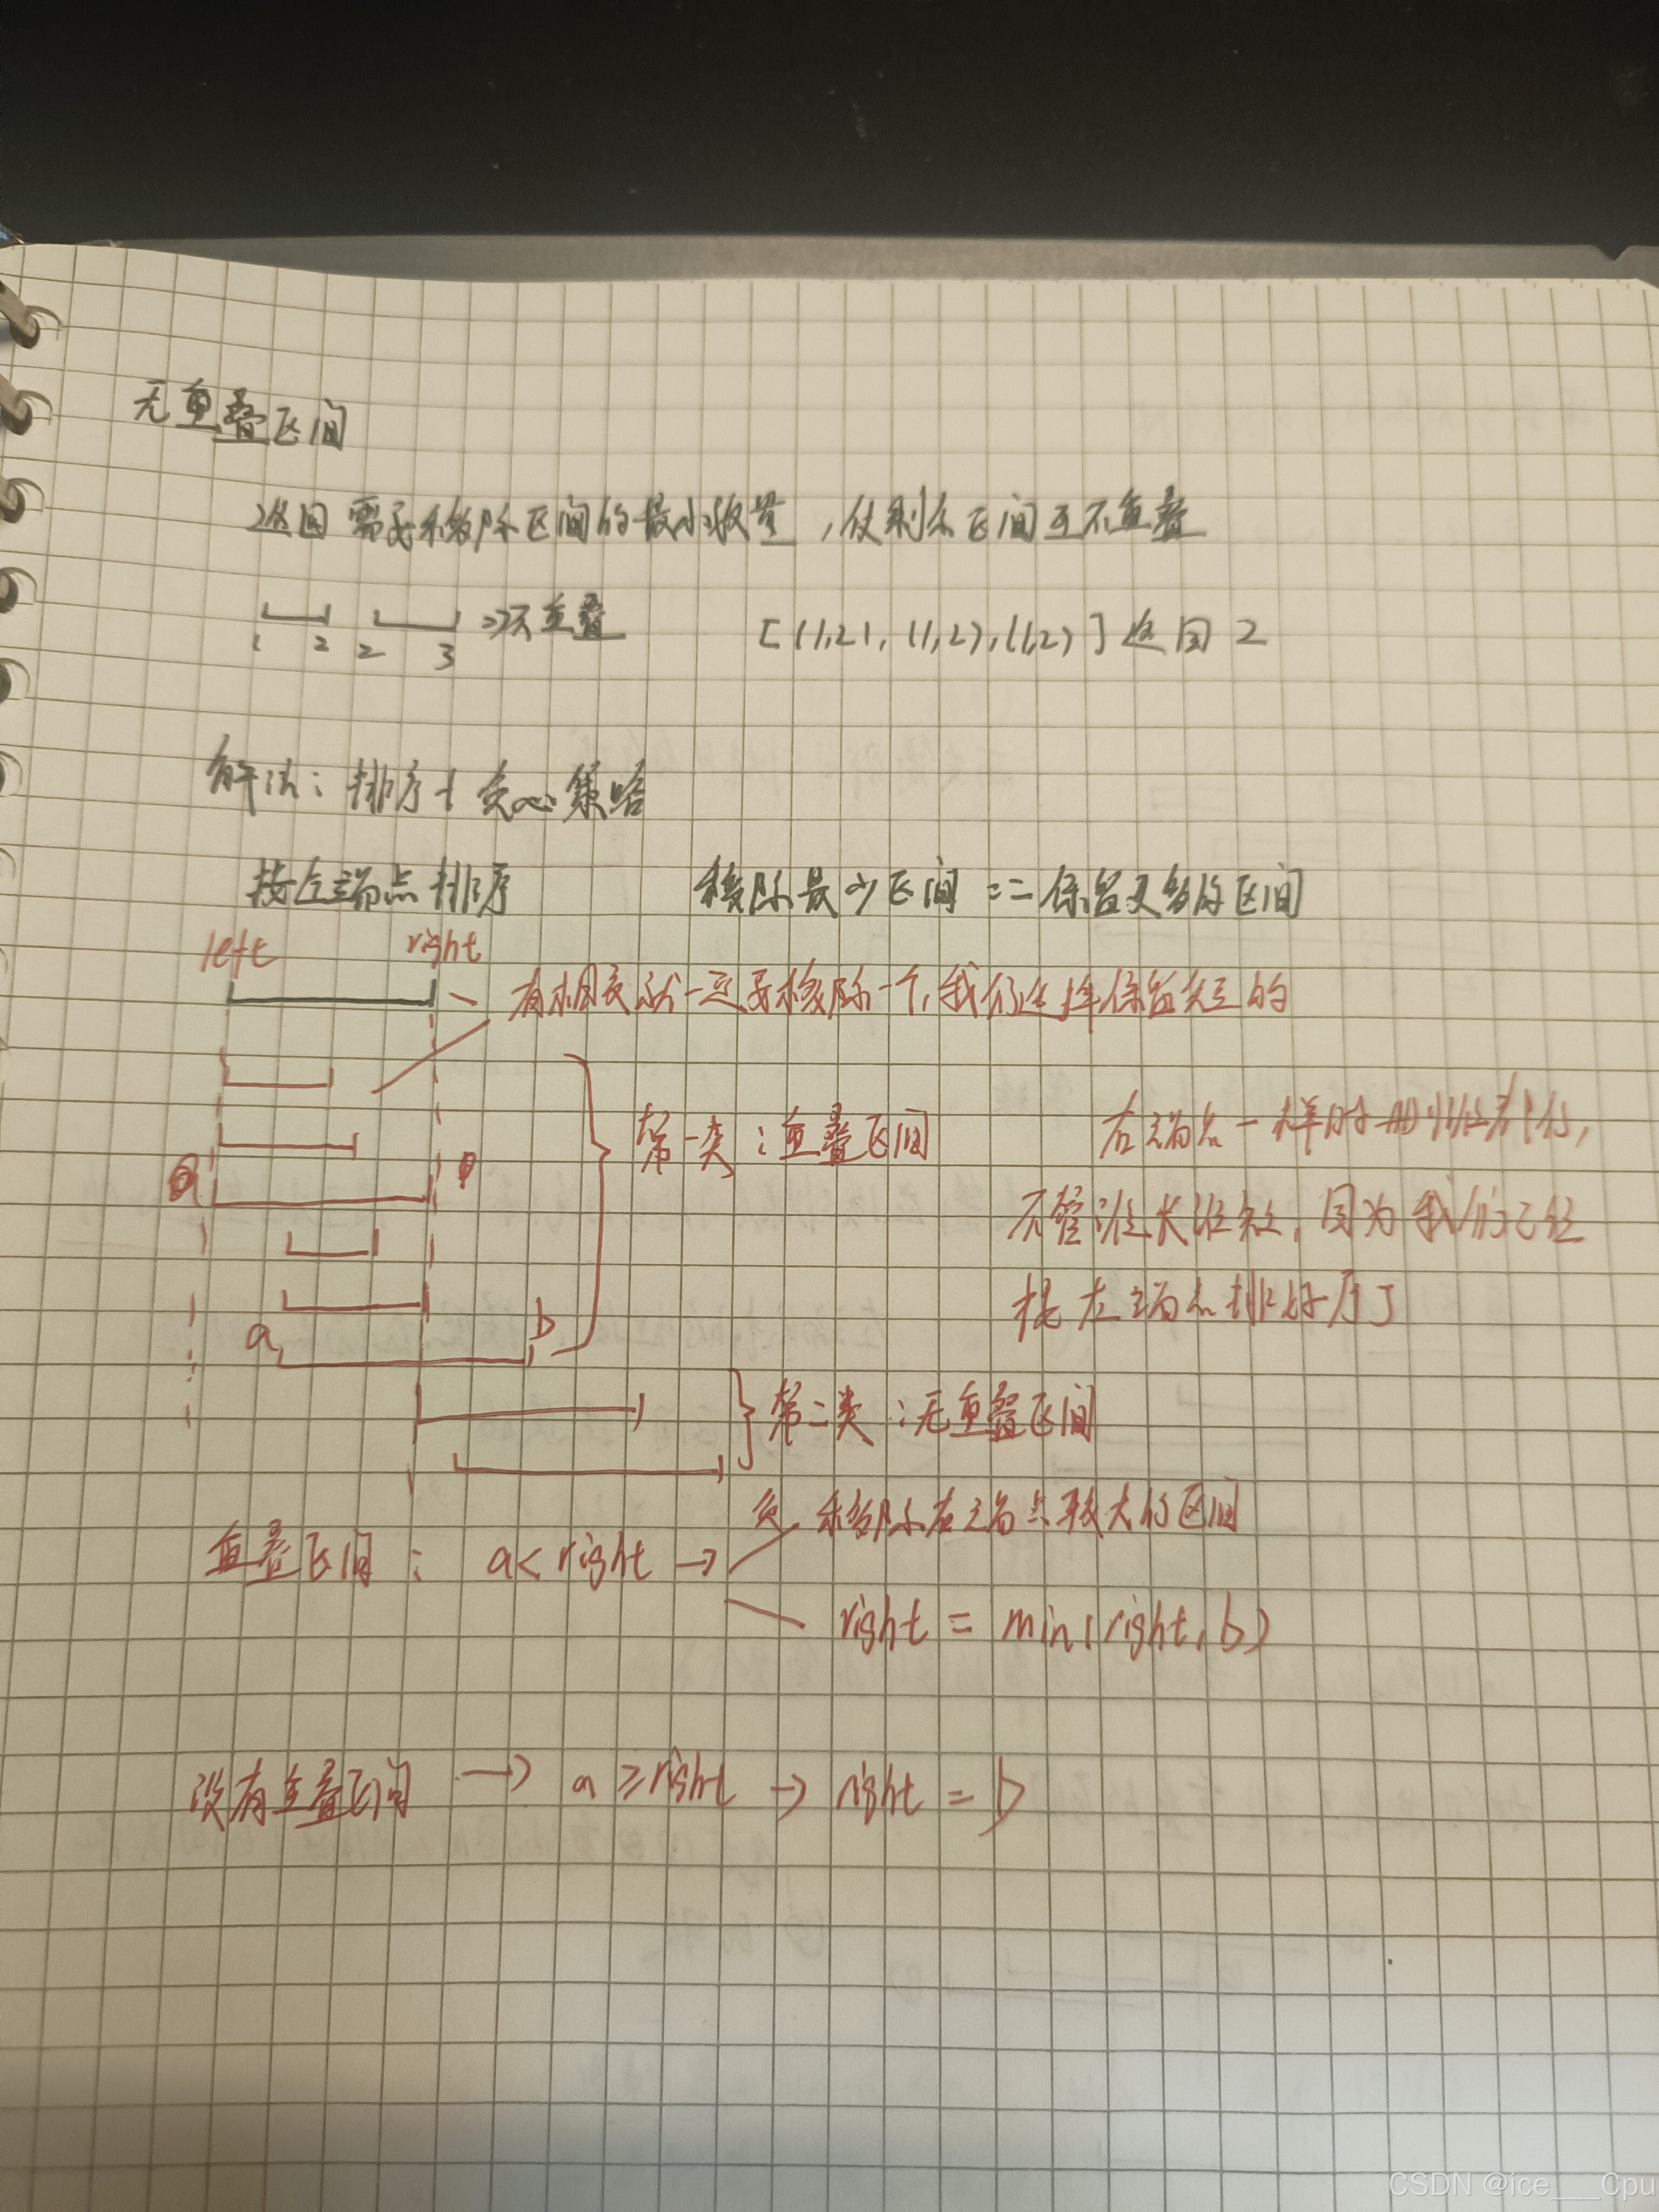 无重叠区间
返回需要移除区间的最小数量,使剩余区间互不重叠
1 2 2 3 没重叠 [(1,2), (1,2),(1,2)] 返回 2
解法: 排序+贪心策略
按左端点排序 移除最少区间 == 保留更多的区间
left right
有相交就一定要移除一个,我们选择保留短的
第一类:重叠区间
右端点一样时删谁都行,
不管谁长谁短,因为我们已经
按左端点排好序了
a b
第二类:无重叠区间
贪 移除右端点较大的区间
重叠区间: a < right →
right = min(right, b)
没有重叠区间 → a ≥ right → right = b
CSDN @ice___Cpu